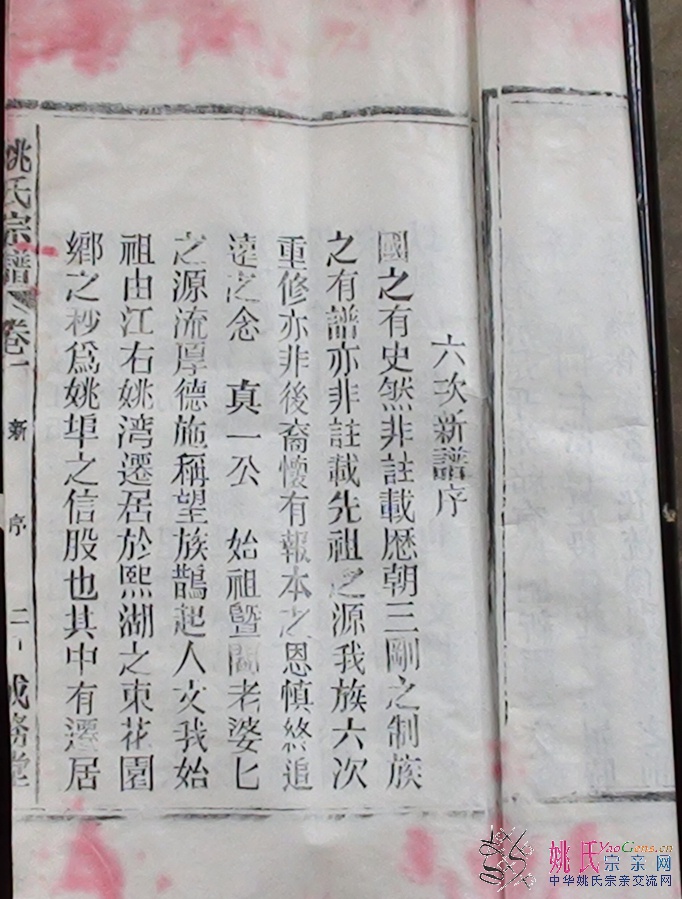 六次新譜序
國之有史然非註載歷朝三剛之制族
之有譜亦非註載先祖之源我族六次
重修亦非後裔懷有報本之恩慎終追
遠之念 真一公 始祖暨閤老婆匕
之源流厚德施稱望族鵲起人文我始
祖由江右姚湾遷居於熙湖之東花園
鄉之杪爲姚埠之信股也其中有遷居
姚氏宗譜 卷一 新序 二 成務堂
姚氏宗亲网
YaoGens.cn
中华姚氏宗亲交流网